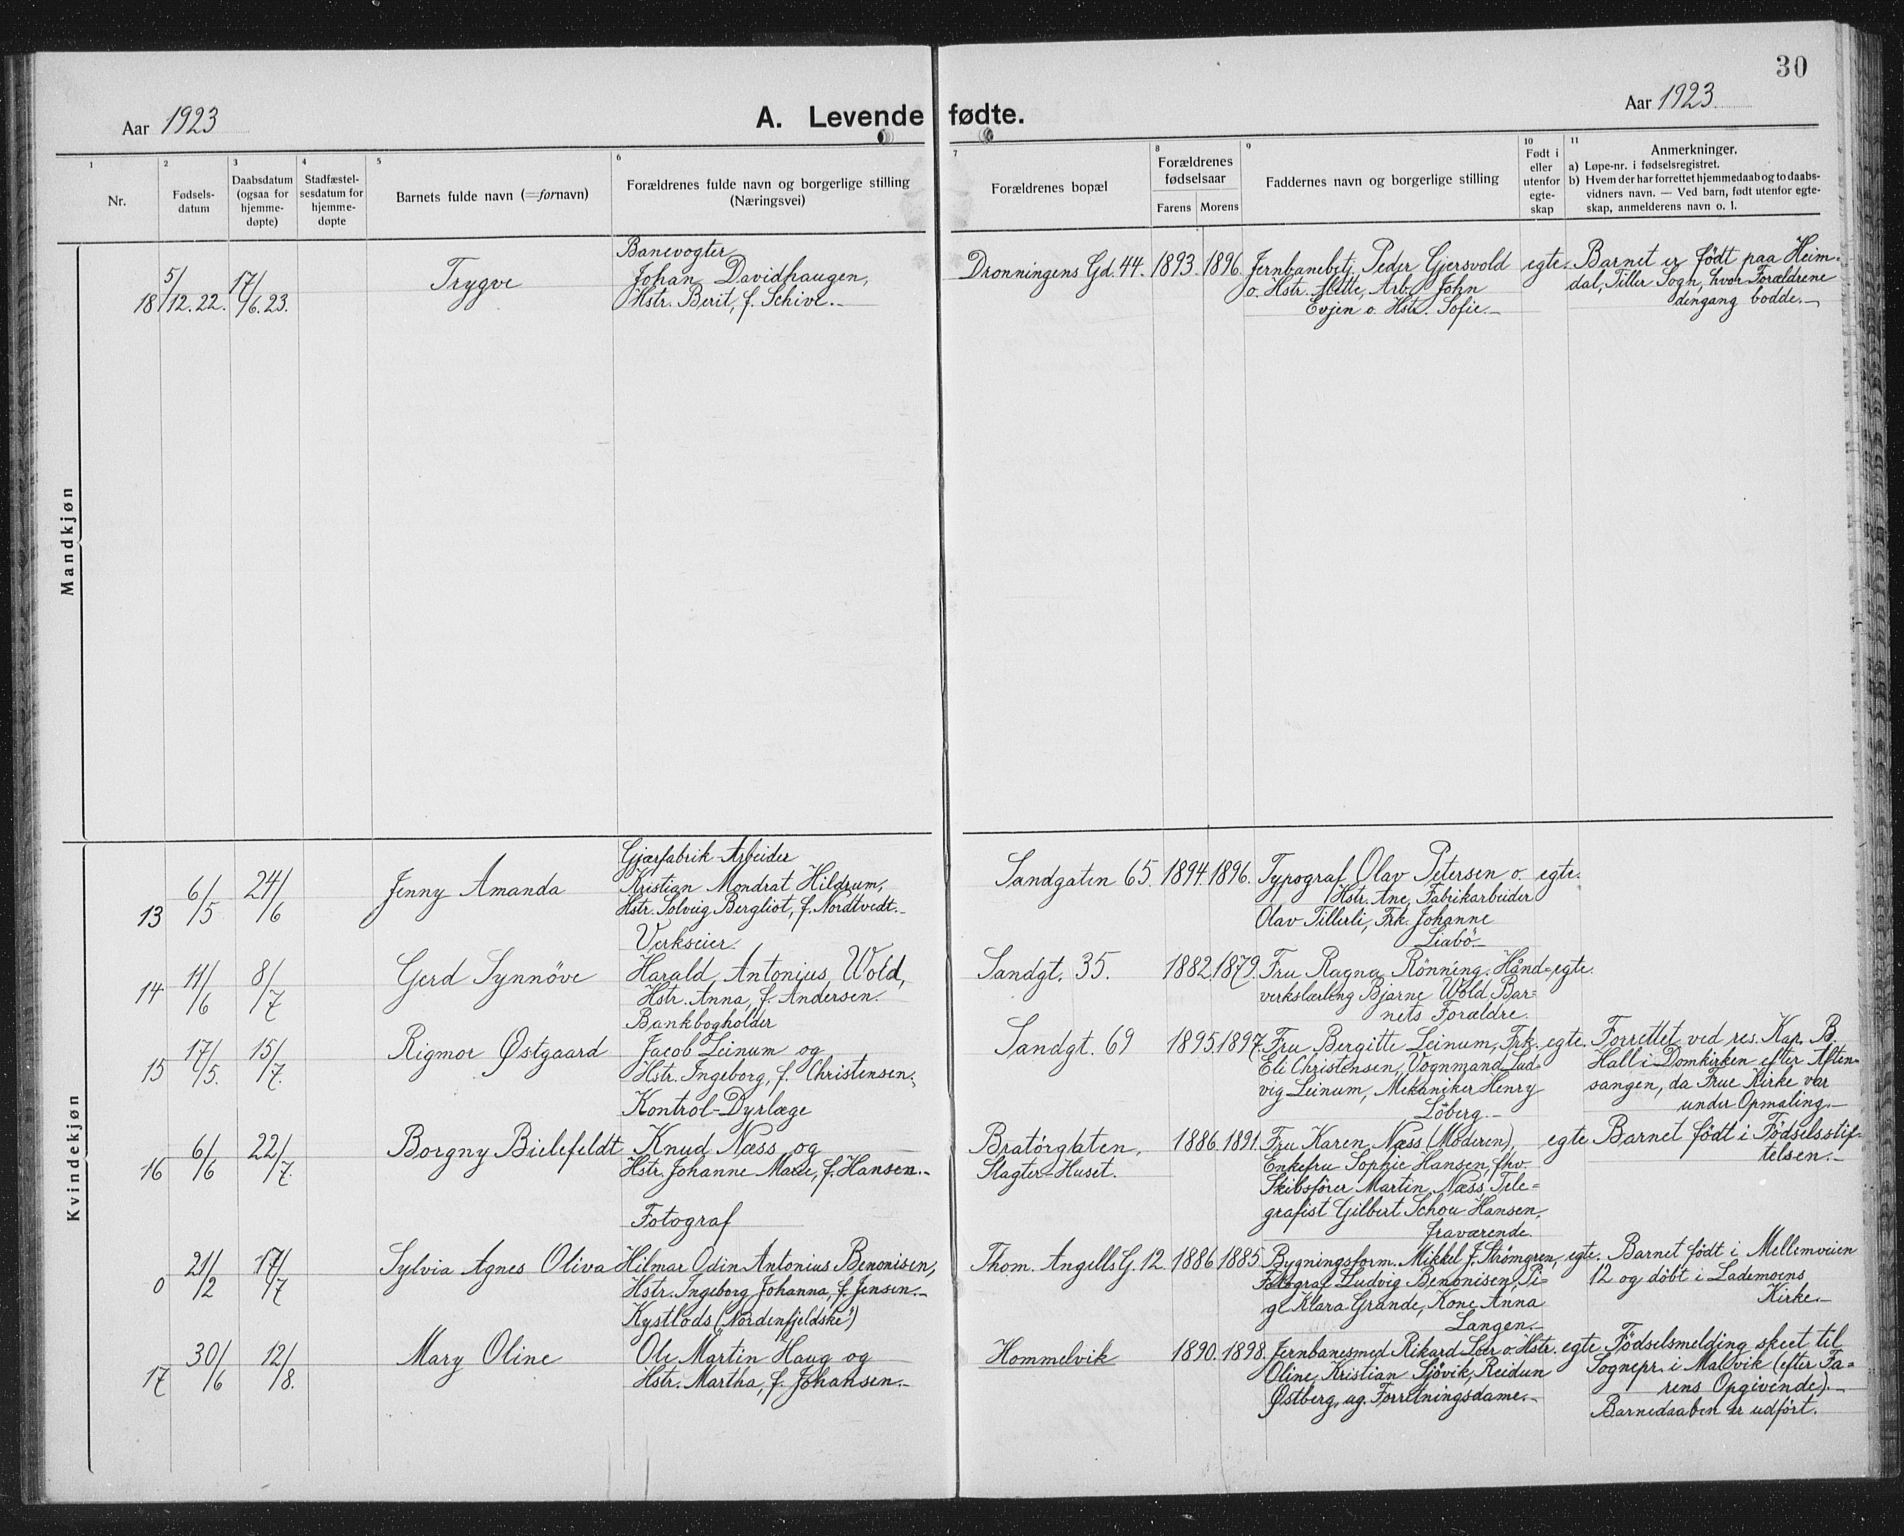 30
Aar 1923
A. Levende fødte.
Aar 1923.
1
Nr.
2
Fødsels-
datum
3
Daabsdatum
(ogsaa for
hjemme-
døpte)
4
Stadfæstel-
sesdatum for
hjemme-
døpte
5
Barnets fulde navn (=fornavn)
6
Forældrenes fulde navn og borgerlige stilling
(Næringsvei)
7
Forældrenes bopæl
8
Forældrenes
fødselsaar
Farens Morens
9
Faddernes navn og borgerlige stilling
10
Født i
eller
utenfor
egte-
skap
11
Anmerkninger.
a) Løpe-nr. i fødselsregistret.
b) Hvem der har forrettet hjemmedaab og to daabs-
vidners navn. — Ved barn, født utenfor egte-
skap, anmelderens navn o. l.
Mandkjøn
18
5/12.22.
17/6.23.
Trygve
Banevogter
Johan Davidhaugen,
Hstr. Berit, f. Schive.-
Dronningens Gd. 44.
1893. 1896.
Jernbanebetj. Peder Gjersvold
o. Hstr. Mette, Arb. John
Evjen o. Hstr. Sofie.-
egte.
Barnet er födt paa Heim-
dal, Tiller Sogn, hvor Forældrene
dengang bodde.-
Kvindekjøn
13
6/5
24/6
Jenny Amanda
Gjærfabrik-Arbeider
Kristian Mondrat Hildrum,
Hstr. Solveig Bergliot, f. Nordtvedt.-
Sandgaten 65.
1894. 1896.
Typograf Olav Petersen o.
Hstr. Ane, Fabrikarbeider
Olav Tillerli, Frk. Johanne
Liabö.-
egte.
14
11/6
8/7
Gerd Synnöve
Verkseier.
Harald Antonius Wold,
Hstr. Anna, f. Andersen.
Sandgt. 35.
1882. 1879.
Fru Ragna Rönning, Hånd-
verkslærling Bjarne Wold, Bar-
nets Forældre.
egte.
15
17/5.
15/7.
Rigmor Østgaard
Bankbogholder
Jacob Leinum og
Hstr. Ingeborg, f. Christensen.-
Sandgt. 69
1895. 1897.
Fru Bergitte Leinum, Frk.
Eli Christensen, Vognmand Lud-
vig Leinum, Mekaniker Henry
Löberg.-
egte.
Forrettet ved res. Kap. B.
Hall i Domkirken efter Aften-
sangen, da Frue Kirke var
under Opmaling.-
16
6/6
22/7.
Borgny Bielefeldt
Kontrol-Dyrlæge
Knud Næss og
Hstr. Johanne Marie, f. Hansen.-
Bratörgaten,
Slagter-Huset.
1886. 1891.
Fru Karen Næss (Moderen),
Enkefru Sophie Hansen, fhv.
Skibsförer Martin Næss, Tele-
grafist Gilbert Schou-Hansen,
fraværende.
egte
Barnet födt i Födselsstif-
telsen.-
0
21/2
17/7
Sylvia Agnes Oliva
Fotograf
Hilmar Odin Antonius Benonisen,
Hstr. Ingeborg Johanna, f. Jensen.-
Thom. Angells G. 12.
1886. 1885.
Bygningsform. Mikkel J. Strömgren,
Fotograf Ludvig Benonisen, Pi-
ge Klara Grande, Kone Anna
Langen.-
egte.
Barnet födt i Mellemveien
12 og döbt i Lademoens
Kirke.-
17
30/6
12/8.
Mary Oline
Kystlods ("Nordenfjeldske")
Ole Martin Haug og
Hstr. Martha, f. Johansen.-
Hommelvik
1890. 1898.
Jernbanesmed Rikard Loer o. Hstr.
Oline, Kristian Sjövik, Reidun
Østberg, ug. Forretningsdame.-
egte.
Födselsmelding skeet til
Sognepr. i Malvik (efter Fa-
rens Opgivende).-
Barnedaaben er udfört.